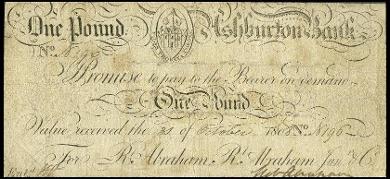 One Pound Ashburton Bank
No.
I Promise to pay to the Bearer on demand
One Pound
Value received the 31 of October 1808 No. N196
For Rt. Abraham, Rt. Abraham Junr. & Co.
Rt Abraham